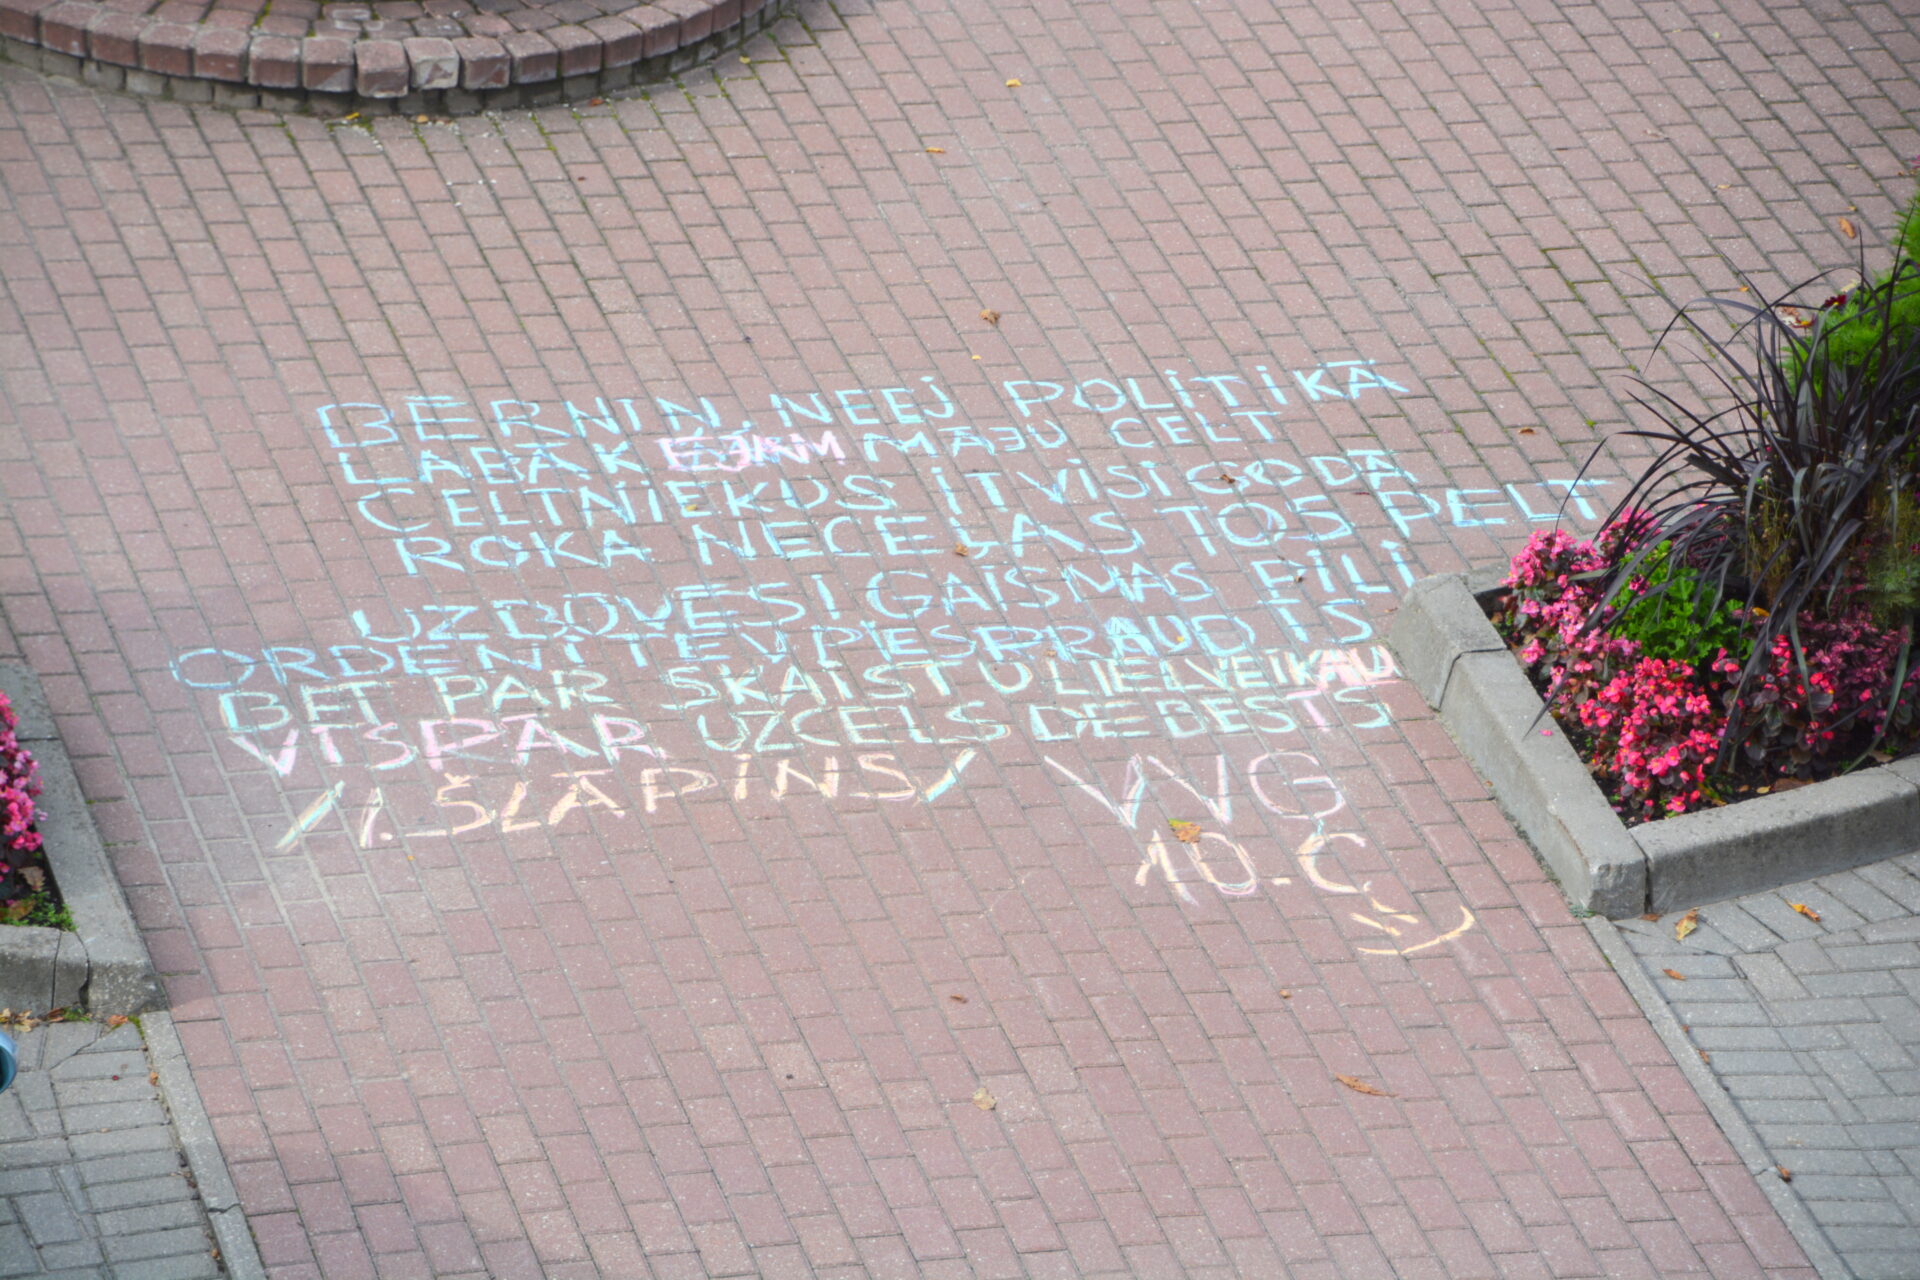 BĒRNIŅ, NEEJ POLITIKĀ
LABĀK EJAM MĀJU CELT
CELTNIEKUS IT VISI GODĀ
ROKA NECEĻAS TOS PELT
UZBŪVĒSI GAISMAS PILI
ORDENĪ TEV PIESPRAUDĪS
BET PAR SKAISTU LIELVEIKALU
VISPĀR UZCELS DEBESĪS
/I. ŠLĀPINS/ VVG
10.C